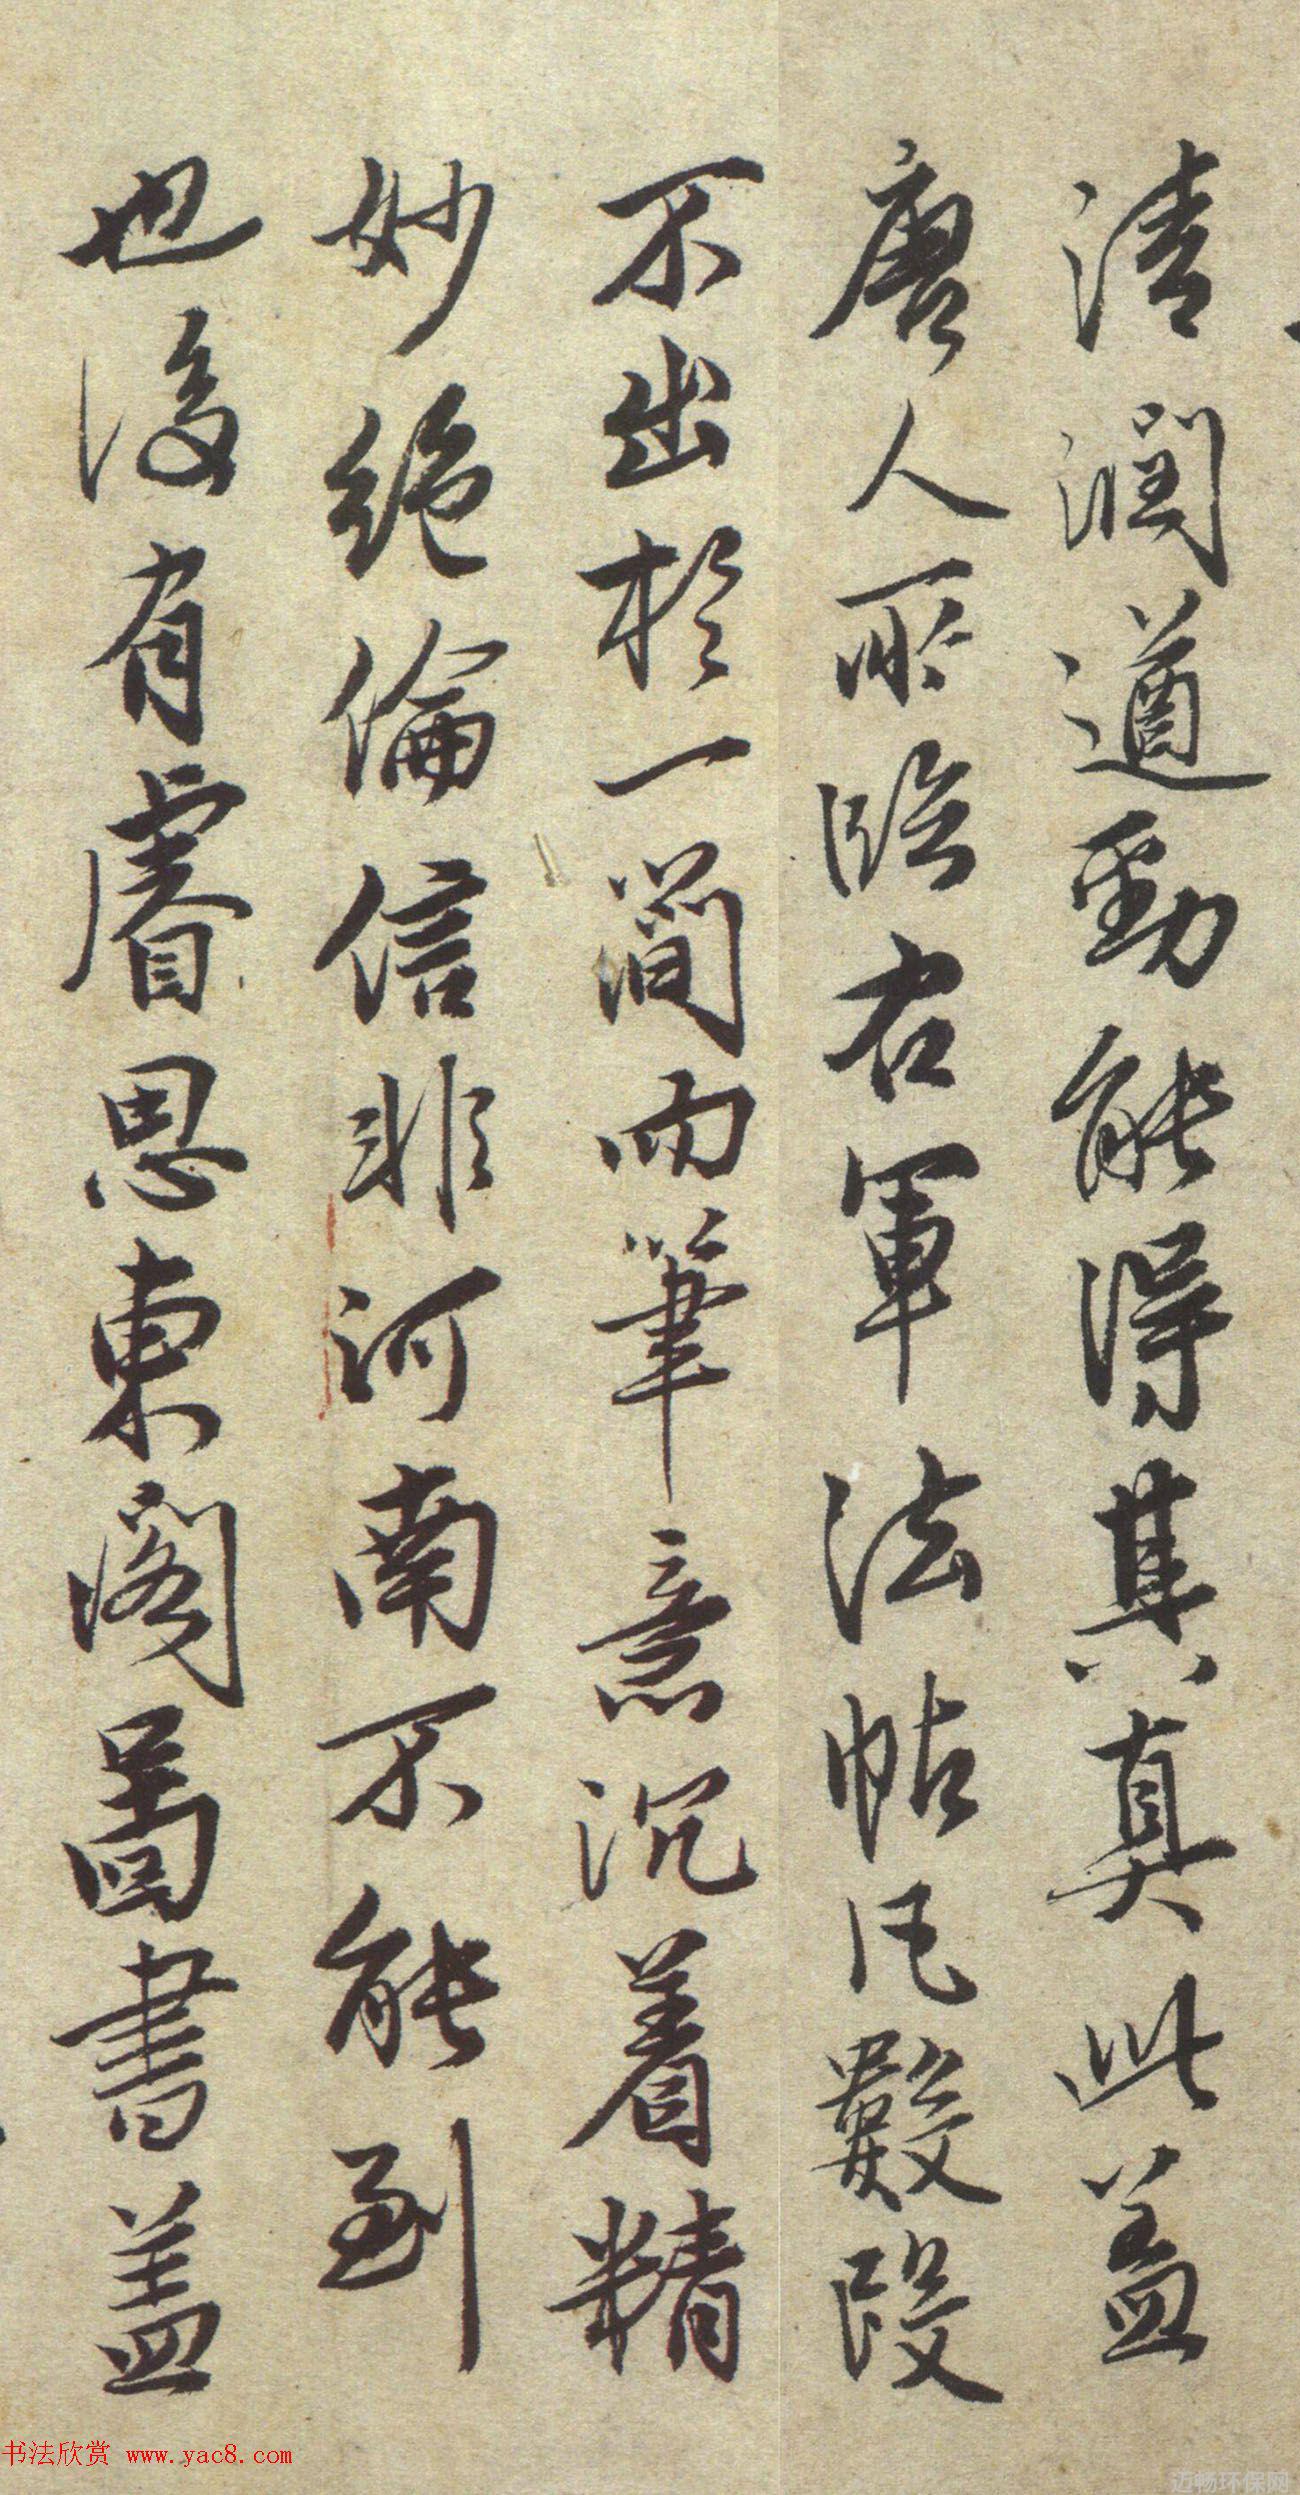 清潤遒勁能得其真此蓋
唐人所臨右軍法帖凡數段
不出於一簡而筆意沉着精
妙絕倫信非河南不能到
也後有睿思東閣圖書蓋
书法欣赏 www.yac8.com
迈畅环保网